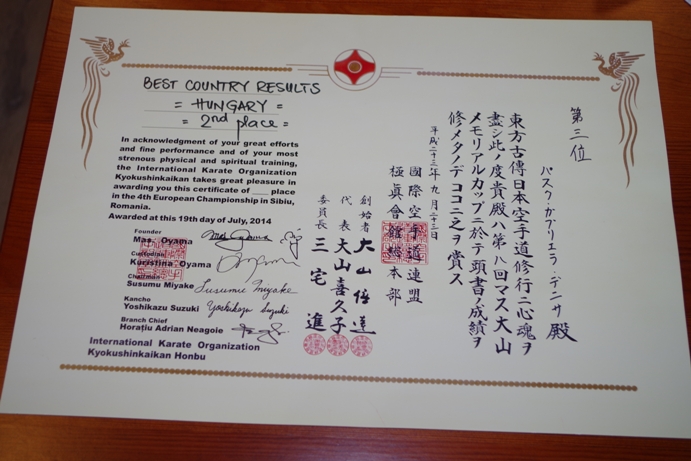 BEST COUNTRY RESULTS
= HUNGARY =
= 2nd place =
In acknowledgment of your great efforts
and fine performance and of your most
strenous physical and spiritual training,
the International Karate Organization
Kyokushinkaikan takes great pleasure in
awarding you this certificate of ___ place
in the 4th European Championship in Sibiu,
Romania.
Awarded at this 19th day of July, 2014
Founder
Mas. Oyama
Custodian
Kuristina Oyama
Chairman
Susumu Miyake
Susumu Miyake
Kancho
Yoshikazu Suzuki
Yoshikazu Suzuki
Branch Chief
Horațiu Adrian Neagoie
International Karate Organization
Kyokushinkaikan Honbu
第三位
パスク・ガブリエラ・デニサ 殿
東方古傳日本空手道修行ニ心魂ヲ
盡シ此ノ度貴殿ハ第八回マス大山
メモリアルカップニ於テ頭書ノ成績ヲ
修メタノデココニ之ヲ賞ス
平成二十三年九月二十三日
國際空手道連盟
極真會館総本部
創始者 大山倍達
代表 大山喜久子
委員長 三宅進